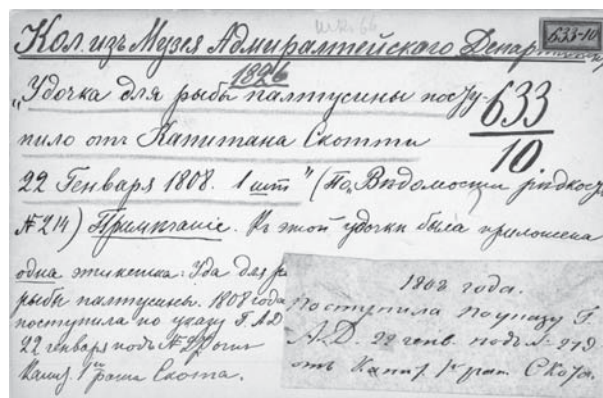 633-10
Кол. изъ Музея Адмиралтейскаго Департ
1826
„Удочка для рыбы палтусины посту-
пило отъ Капитана Скотти
633
10
22 Генваря 1808. 1 шт" (По „Вѣдомости рѣдкос
№ 214) Примѣчаніе. Къ этой удочки была приложена
одна этикетка: Уда для
рыбы палтусины. 1808 года
поступила по указу Г. А.Д
22 генваря подъ № отъ
Капит. 1го ранга Скота.
1808 года.
поступила по указу Г.
А.Д. 22 генв. подъ № 219.
отъ Капит. 1го ран. Скота.